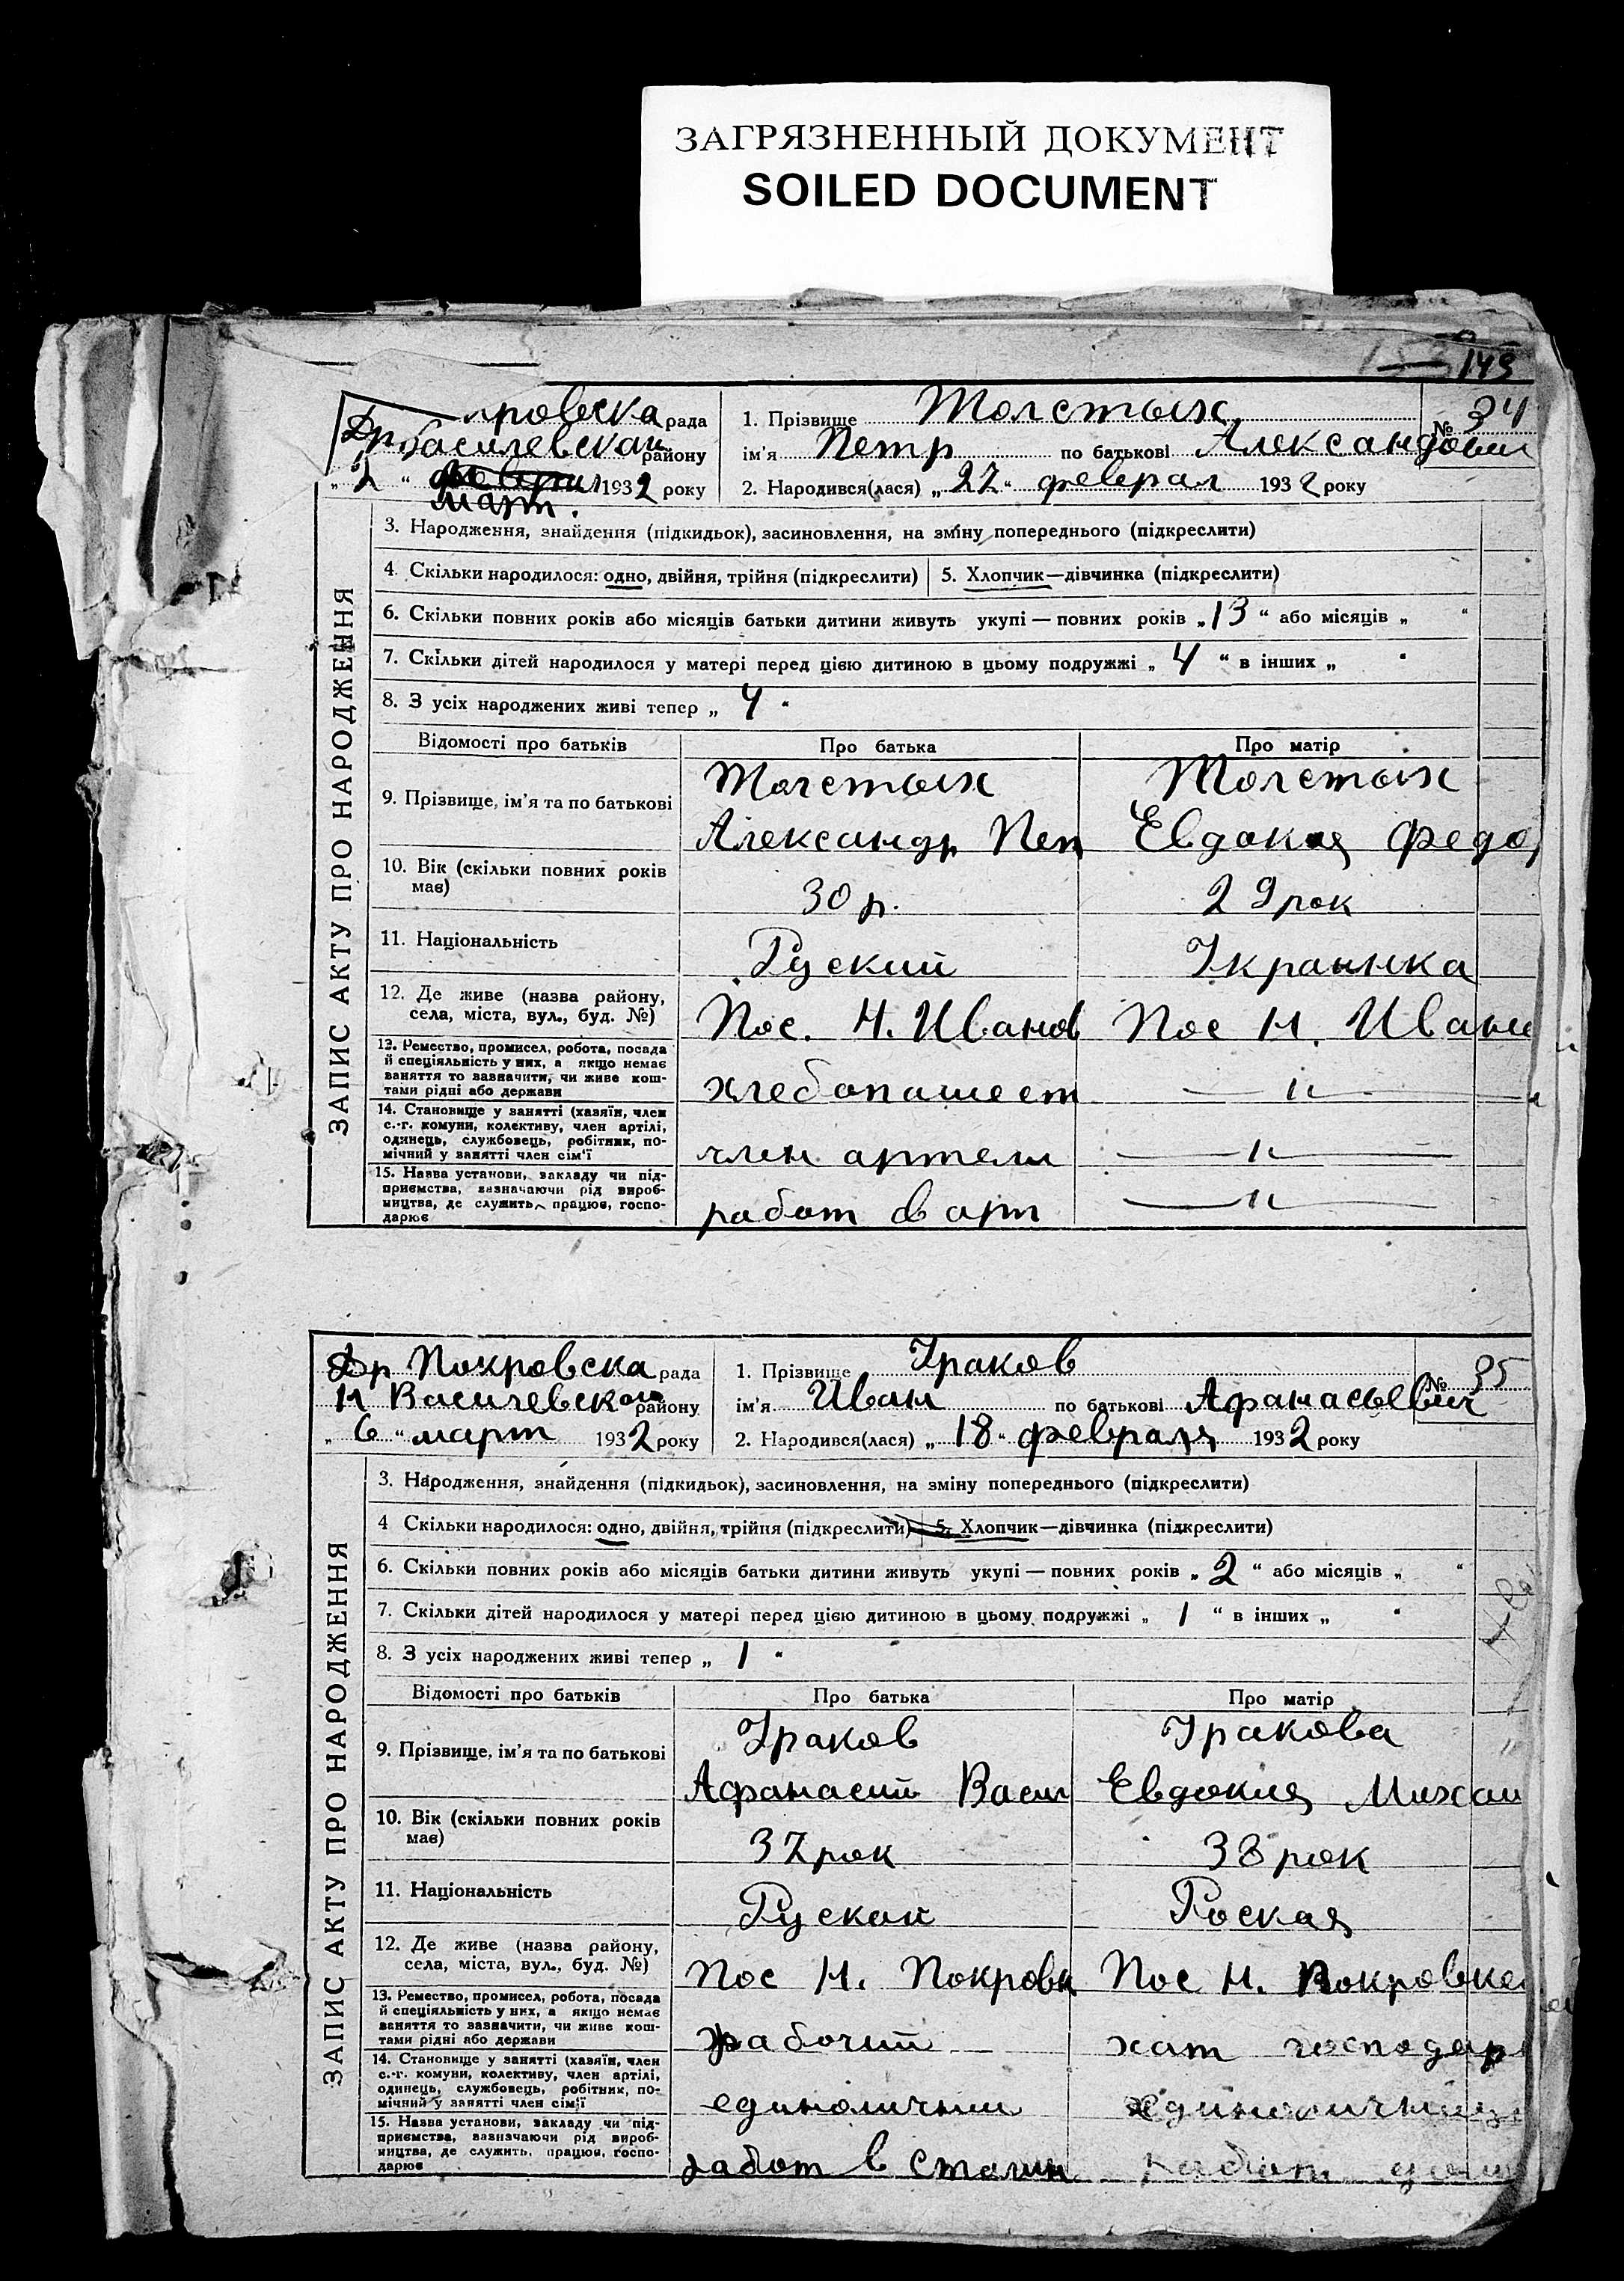 ЗАГРЯЗНЕННЫЙ ДОКУМЕНТ
SOILED DOCUMENT
149
ровска рада
Др Василевскаи району
„ 2 “ март. 1932 року
1. Прізвище Толстых
№ 34
ім'я Петр по батькові Александович
2. Народився(лася) „ 27 “ феврал 1932 року
ЗАПИС АКТУ ПРО НАРОДЖЕННЯ
3. Народження, знайдення (підкидьок), засиновлення, на зміну попереднього (підкреслити)
4. Скільки народилося: одно, двійня, трійня (підкреслити) 5. Хлопчик—дівчинка (підкреслити)
6. Скільки повних років або місяців батьки дитини живуть укупі — повних років „ 13 “ або місяців „ “
7. Скільки дітей народилося у матері перед цією дитиною в цьому подружжі „ 4 “ в інших „ “
8. З усіх народжених живі тепер „ 4 “
Відомості про батьків Про батька Про матір
9. Прізвище, ім'я та по батькові
Толстых Толстых
Александр Пет Евдокия Федо
10. Вік (скільки повних років має)
30 р. 29 рок
11. Національність
Руский Украинка
12. Де живе (назва району, села, міста, вул., буд. №)
Пос. Н. Иванов Пос Н. Ивано
13. Ремество, промисел, робота, посада
й спеціяльність у них, а якщо немає
заняття то зазначити, чи живе кош-
тами рідні або держави
хлебопашест — " —
14. Становище у занятті (хазяїн, член
с.-г. комуни, колективу, член артілі,
одинець, службовець, робітник, по-
мічний у занятті член сім'ї
член артели — " —
15. Назва установи, закладу чи під-
приємства, зазначаючи рід вироб-
ництва, де служить, працює, госпо-
дарює
работ в арт — " —
Др Покровска рада
Н Василевскаи району
„ 6 “ март 1932 року
1. Прізвище Ураков
№ 35
ім'я Иван по батькові Афанасьевич
2. Народився(лася) „ 18 “ февраля 1932 року
ЗАПИС АКТУ ПРО НАРОДЖЕННЯ
3. Народження, знайдення (підкидьок), засиновлення, на зміну попереднього (підкреслити)
4 Скільки народилося: одно, двійня, трійня (підкреслити) 5. Хлопчик—дівчинка (підкреслити)
6. Скільки повних років або місяців батьки дитини живуть укупі — повних років „ 2 “ або місяців „ “
7. Скільки дітей народилося у матері перед цією дитиною в цьому подружжі „ 1 “ в інших „ “
8. З усіх народжених живі тепер „ 1 “
Відомості про батьків Про батька Про матір
9. Прізвище, ім'я та по батькові
Ураков Уракова
Афанасий Васил Евдокия Михаи
10. Вік (скільки повних років має)
37 рок 38 рок
11. Національність
Рускаи Роская
12. Де живе (назва району, села, міста, вул., буд. №)
Пос Н. Покровк Пос Н. Покровке
13. Ремество, промисел, робота, посада
й спеціяльність у них, а якщо немає
заняття то зазначити, чи живе кош-
тами рідні або держави
рабочий хат господар
14. Становище у занятті (хазяїн, член
с.-г. комуни, колективу, член артілі,
одинець, службовець, робітник, по-
мічний у занятті член сім'ї
единоличнии единоличница
15. Назва установи, закладу чи під-
приємства, зазначаючи рід вироб-
ництва, де служить, працює, госпо-
дарює
работ в Сталин работ